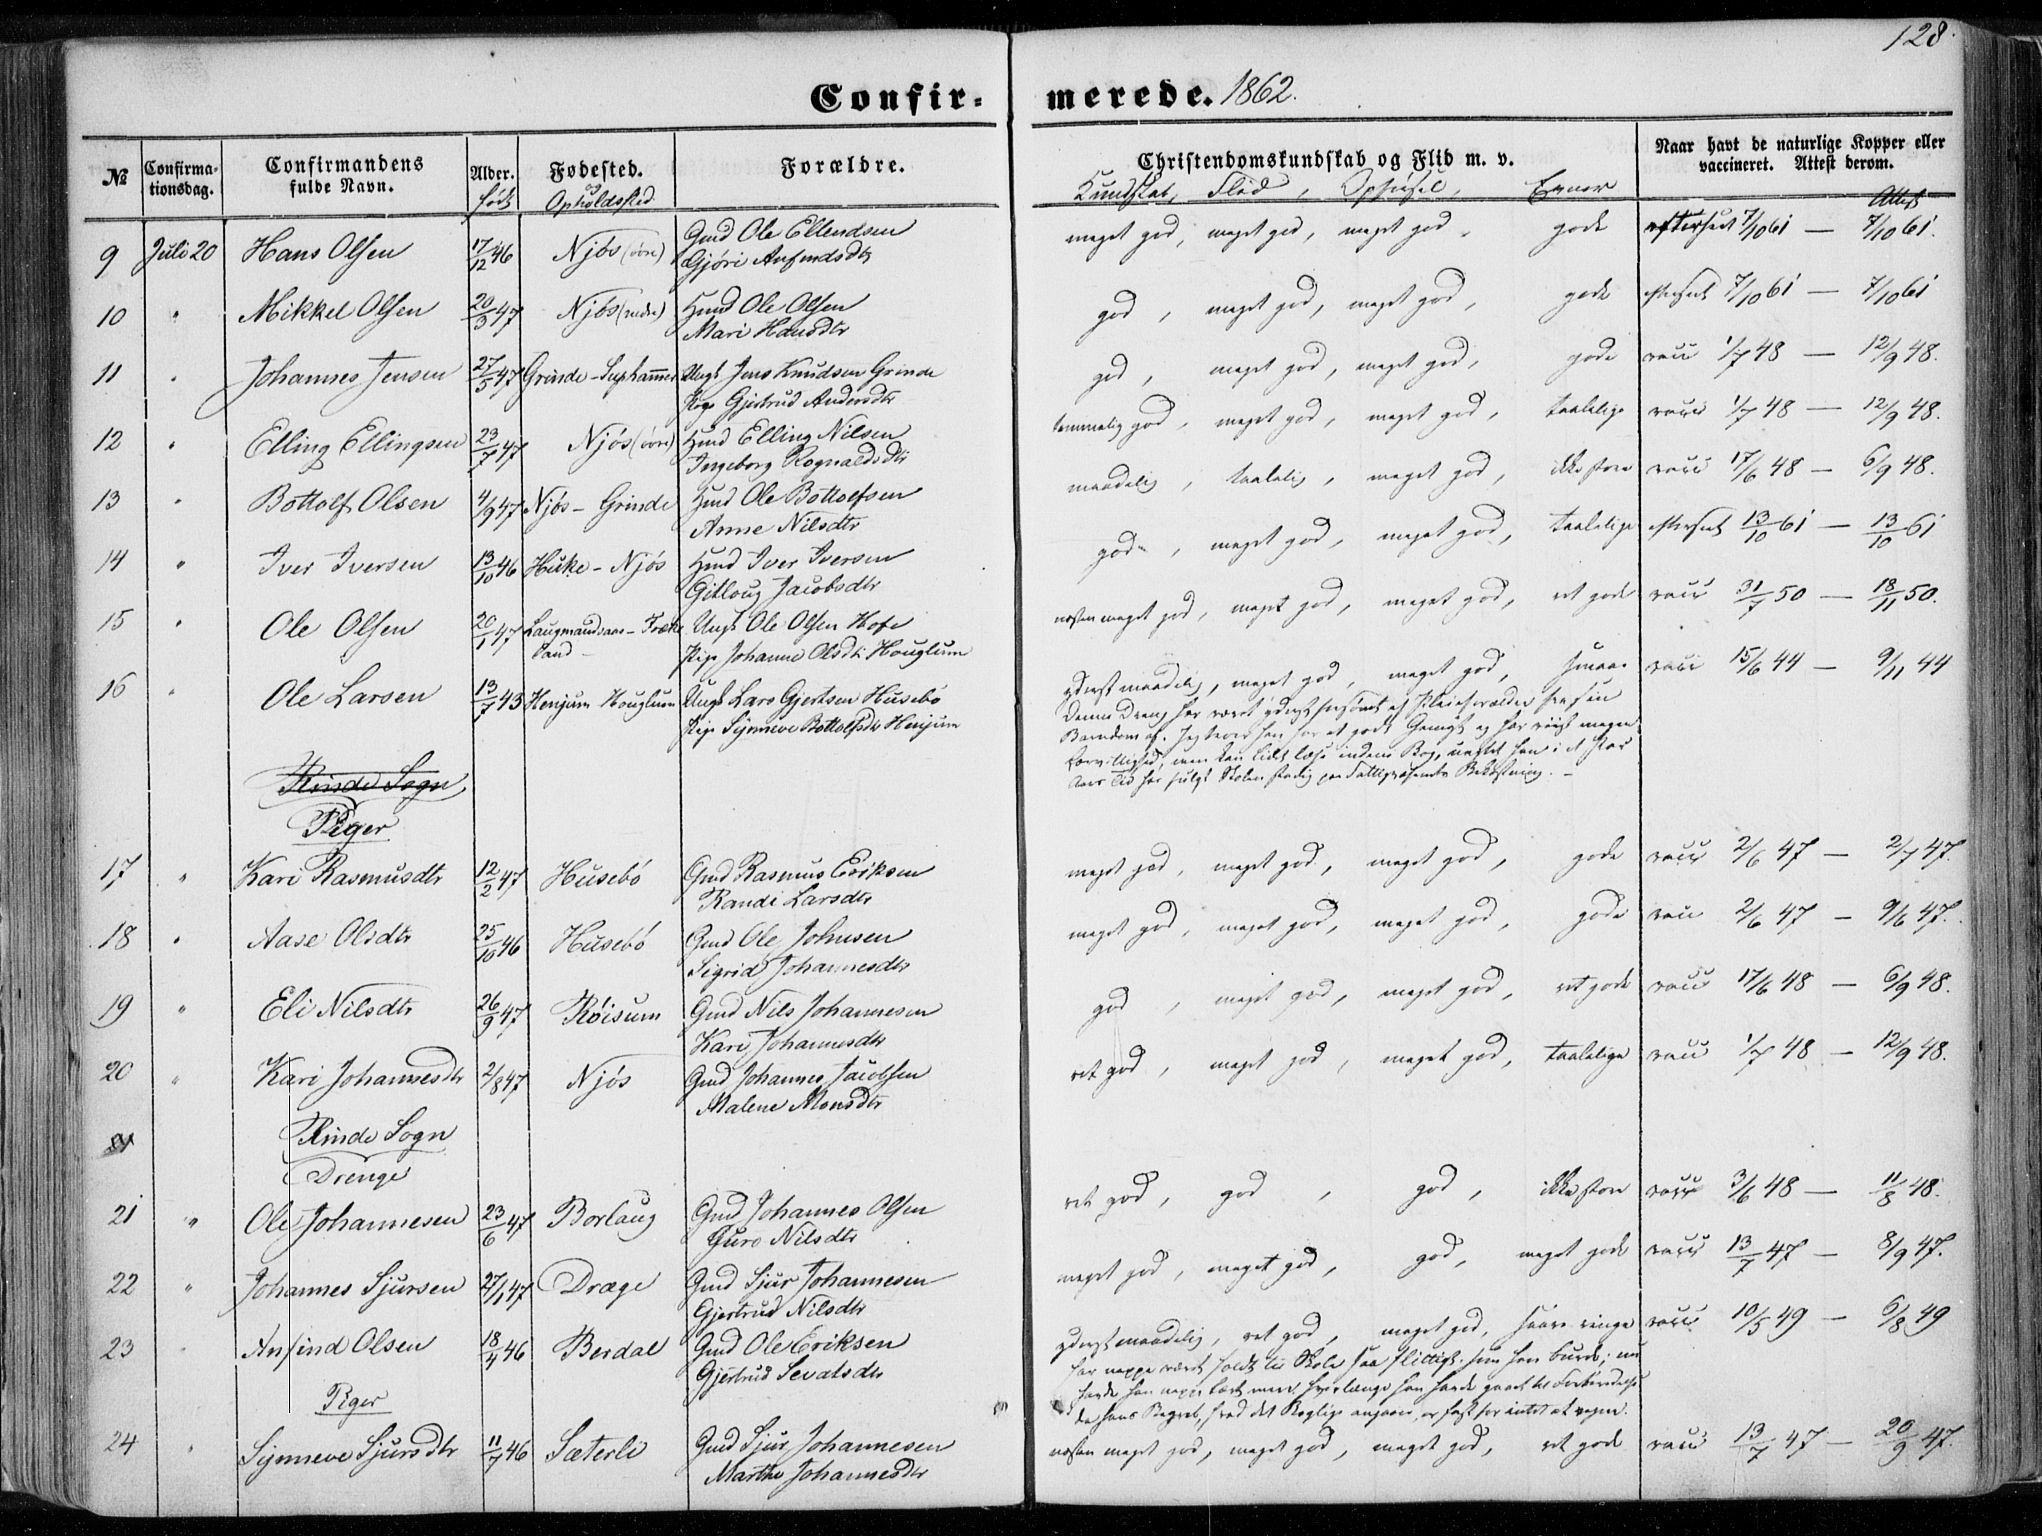 128.
Confir- merede. 1862.
№ Confirma- tionsdag. Confirmandens fulde Navn. Alder. født Fødested. og Opholdssted Forældre. Christendomskundskab og Flid m. v. Kundskab, Flid, Opførsel, Evner Naar havt de naturlige Kopper eller vaccineret. Attest derom. Attest
9 Juli 20 Hans Olsen 17/12 46 Njøs (øvre) Gmd Ole Ellendsen meget god, meget god, meget god, gode efterseet 7/10 61 — 7/10 61.
Gjøri Anfindsdtr
10 " Mikkel Olsen 20/3 47 Njøs (nedre) Hmd Ole Olsen god, meget god, meget god, gode efterseet 7/10 61 — 7/10 61
Mari Hansdtr
11 " Johannes Jensen 27/5 47 Grinde - Suphammer Ungk Jens Knudsen Grinde god, meget god, meget god, gode vacc 1/7 48 — 12/9 48.
Pige Gjertrud Andersdtr
12 " Elling Ellingsen 23/7 47 Njøs (øvre) Hmd Elling Nilsen temmelig god, meget god, meget god, taalelige vacc 1/7 48 — 12/9 48.
Ingeborg Rognaldsdtr
13 " Bottolf Olsen 4/9 47 Njøs - Grinde Hmd Ole Bottolfsen maadelig, taalelig, meget god, ikke store vacc 17/6 48 — 6/9 48.
Anne Nilsdtr
14 " Iver Iversen 13/10 46 Huke - Njøs Hmd Iver Iversen god, meget god, meget god, taalelige eftersеet 13/10 61 — 13/10 61
Gitloug Jacobsdtr
15 " Ole Olsen 20/1 47 Laugmandsaas - Frække Ungk Ole Olsen Hofe næsten meget god, meget god, meget god, ret gode vacc 31/7 50 — 13/11 50.
land - Pige Johanne Olsdtr Houglum
16 " Ole Larsen 13/7 43 Henjum Houglum Ungk Lars Gjertsen Husebø yderst maadelig, meget god, meget god, smaae vacc 15/6 44 — 9/11 44
Pige Synneve Bottolfsdtr Henjum
Denne Dreng har været yderst forsømt af Pleieforældre fra sin
Barndom af. Jeg troer han har et godt Gemyt og har viist megen
Lærvillighed, men kan lidt læse inden i Bog, uagtet han i et Par
Aars Tid har fulgt Skolen stadig paa Fattigvæsenets Bekostning. -
Rinde Sogn
Piger
17 " Kari Rasmusdtr 12/2 47 Husebø Gmd Rasmus Eriksen meget god, meget god, meget god, gode vacc 2/6 47 — 2/7 47.
Randi Larsdtr
18 " Aase Olsdtr 25/10 46 Husebø Gmd Ole Johnsen meget god, meget god, meget god, gode vacc 2/6 47 — 9/6 47.
Sigrid Johannesdtr
19 " Eli Nilsdtr 26/9 47 Røisum Gmd Nils Johannesen god, meget god, meget god, ret gode vacc 17/6 48 — 6/9 48.
Kari Johannesdtr
20 " Kari Johannesdtr 2/8 47 Njøs Gmd Johannes Jacobsen ret god, meget god, meget god, taalelige vacc 1/7 48 — 12/9 48.
Malene Monsdtr
21 Rinde Sogn
Drenge
21 " Ole Johannesen 23/6 47 Borlaug Gmd Johannes Olsen ret god, god, god, ikke store vacc 3/6 48 — 11/8 48.
Guro Nilsdtr
22 " Johannes Sjursen 27/1 47 Dræge Gmd Sjur Johannesen meget god, meget god, god, meget gode vacc 13/7 47 — 8/9 47.
Gjertrud Nilsdtr
23 " Anfind Olsen 18/4 46 Berdal Gmd Ole Eriksen yderst maadelig, ret god, meget god, saare ringe vacc 10/5 49 — 6/8 49
Gjertrud Sevatsdtr
har neppe været holdt til Skole saa flittigt som han burde; nu
havde han neppe lært mere, hvor længe han havde gaaet til Forberedelse
da hans Begreb, hvad det Boglige angaaer, er fast for intet at regne.
Piger
24 " Synneve Sjursdtr 11/7 46 Sæterli Gmd Sjur Johannesen næsten meget god, meget god, meget god, ret gode vacc 13/7 47 — 20/9 47.
Marthe Johannesdtr